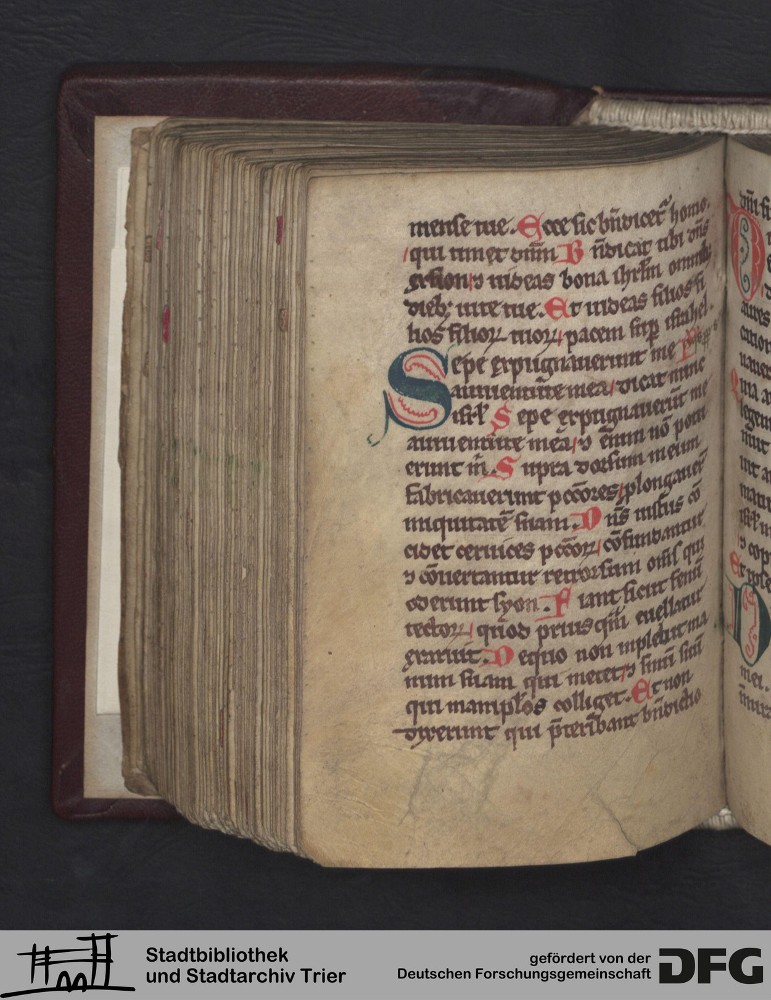 mense tue. Ecce sic bn̄dicet᷑ homo.
qui timet dn̄m B n̄dicat tibi dn̄s
ex sion ⁊ uideas bona ihrl̄m omnib;
dieb; uite tue. Et uideas filios fi
lioꝝ tuoꝝ pacem sup̄ israhel.
Sepe expugnauerunt me
a iuuentute mea dicat nunc
isrl̄ S epe expugnauerūt me
a iuuentute mea ⁊ etn̄im nō potu
erunt m̄. S upra dorsum meum
fabricauerunt pcc̄ores plongauer̄
iniquitatē suam. D n̄s iustus cō
cidet ceruices pcc̄oꝝ cōfundantur
⁊ cōuertantur retrorsum om̄s qui
oderunt syon. F iant sicut fenū
tectoꝝ quod prius qm̄ euellatur
exaruit. D e quo non inplebit ma
num suam qui metet ⁊ sinū suū
qui manipl̄os colliget. Et non
dixerunt qui p̄teribant bn̄dictio
Stadtbibliothek
und Stadtarchiv Trier
gefördert von der
Deutschen Forschungsgemeinschaft
DFG